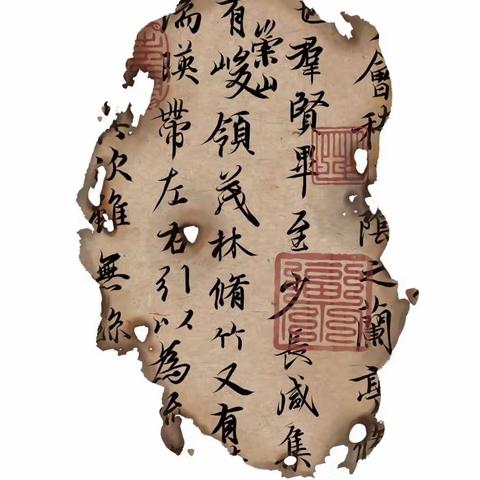 會稽陰之蘭亭
也羣賢畢至少長咸集
有崇山峻領茂林脩竹又有
湍暎帶左右引以為流
次雖無絲